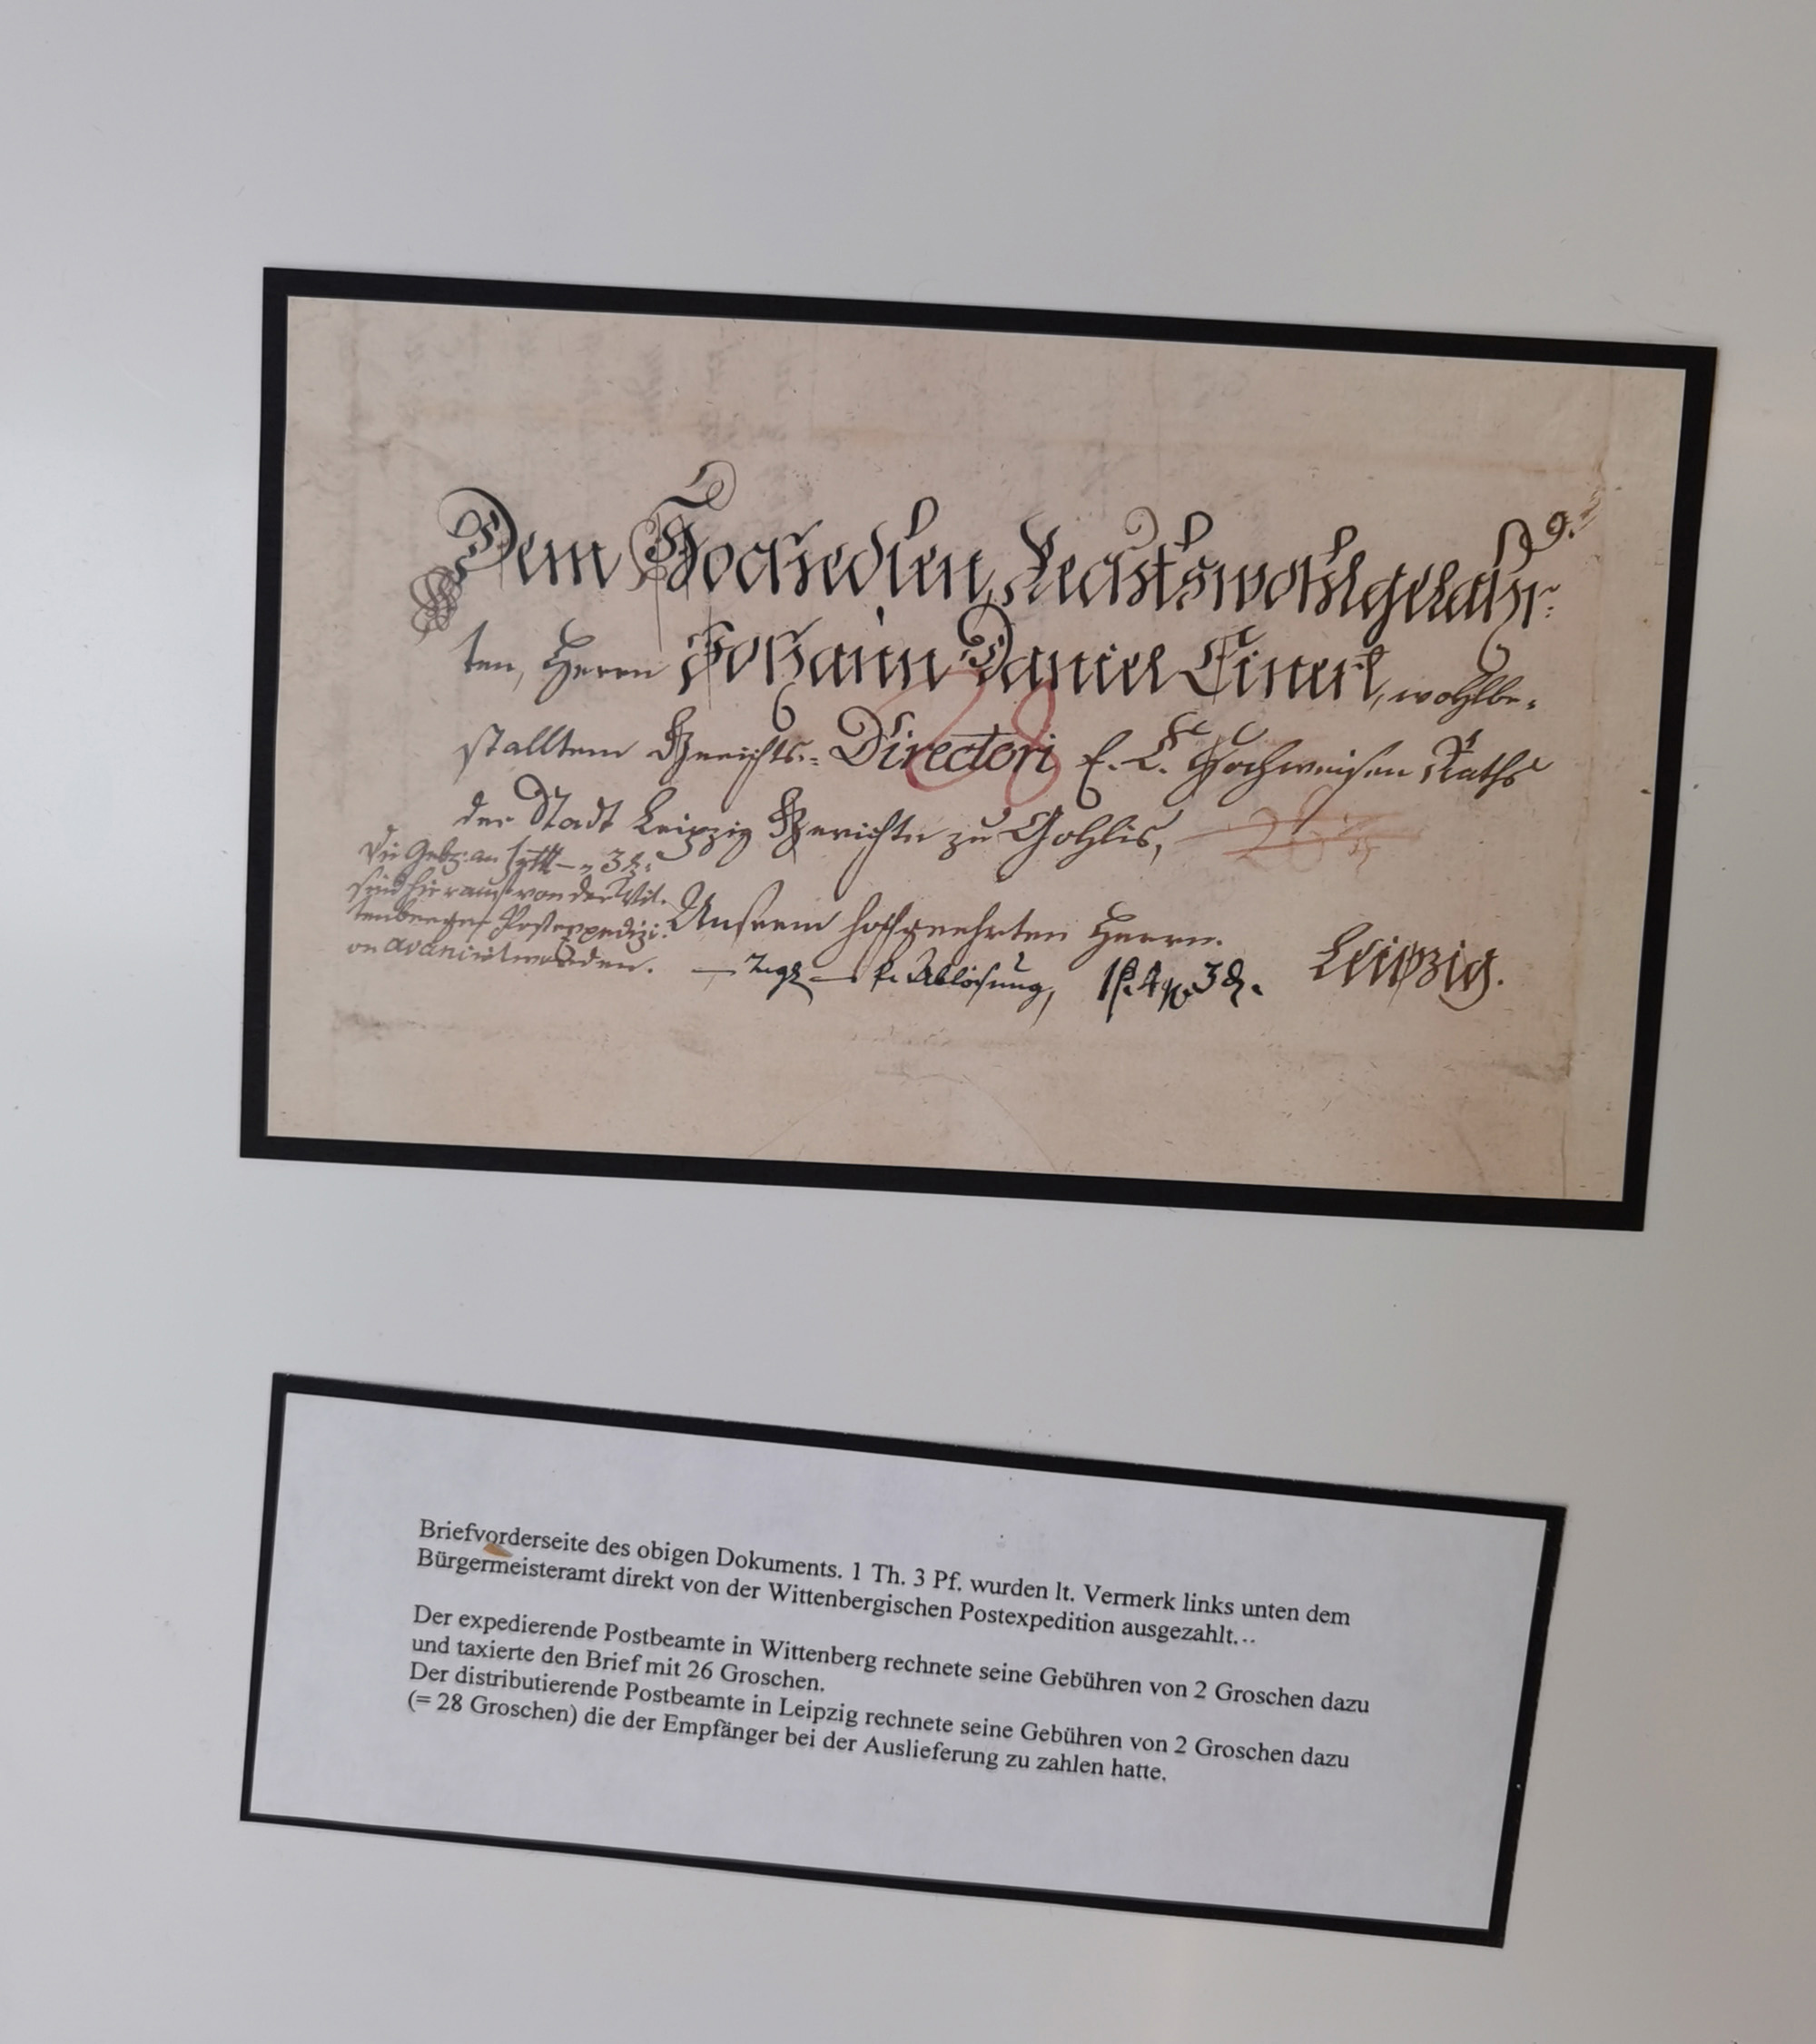 Dem Hochedlen, Rechtswohlgelahr-
ten, Herrn Johann Daniel Einert, wohlbe-
stalltem Gerichts- Directori E. E. Hochweisen Raths
28
der Stadt Leipzig Gerichte zu Gohlis,
26
Die Geb: an 3 δ.
sind hierauf von der Wit-
tenberger Postexpediti-
on avancirt worden.
Unserm hochgeehrten Herrn.
Leipzig.
Ablösung, 4 3 δ.
Briefvorderseite des obigen Dokuments. 1 Th. 3 Pf. wurden lt. Vermerk links unten dem
Bürgermeisteramt direkt von der Wittenbergischen Postexpedition ausgezahlt...
Der expedierende Postbeamte in Wittenberg rechnete seine Gebühren von 2 Groschen dazu
und taxierte den Brief mit 26 Groschen.
Der distributierende Postbeamte in Leipzig rechnete seine Gebühren von 2 Groschen dazu
(= 28 Groschen) die der Empfänger bei der Auslieferung zu zahlen hatte.